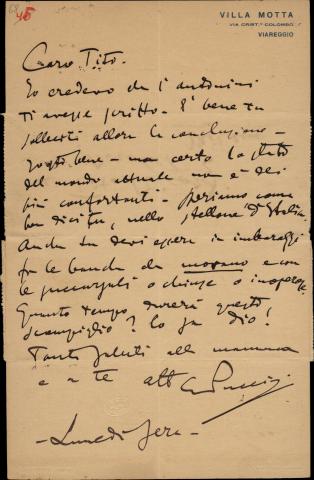 45
VILLA MOTTA
VIA CRIST.º COLOMBO
VIAREGGIO
Caro Tito.
Io credevo che l'Antonini
ti avesse scritto. È bene tu
solleciti allora la conclusione –
bene – ma certo lo stato
del mondo attuale non è dei
più confortanti. Speriamo come
ben dici tu, nello stellone d'Italia
Anche tu devi essere in imbarazzi
fra le banche da e con
le o chiuse o inoperose.
Quanto tempo durerà questo
scompiglio? Lo sa Dio!
Tanti saluti alla mamma
e a te aff
G Puccini
– Lunedì sera –